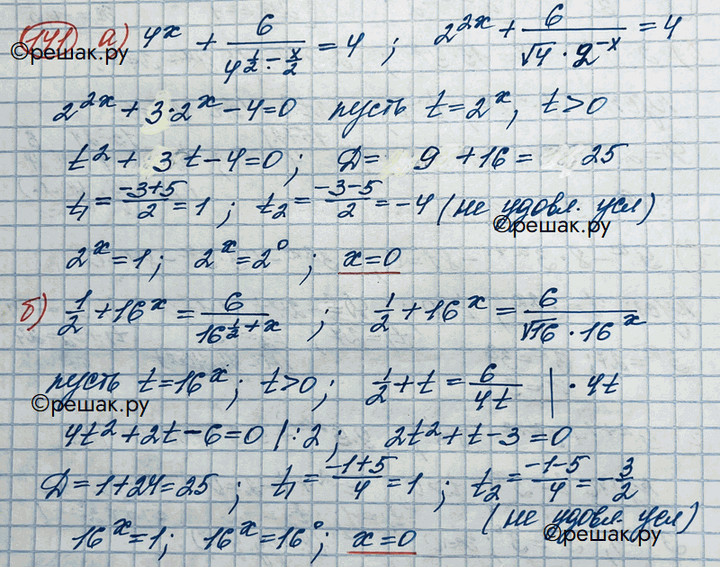 141 а) 4^x + 6/(4^(1/2 - x/2)) = 4 ; 2^(2x) + 6/(√4 · 2^(-x)) = 4
©решак.ру
2^(2x) + 3·2^x - 4 = 0 пусть t = 2^x, t > 0
t² + 3t - 4 = 0 ; Д = 9 + 16 = 25
t₁ = (-3+5)/2 = 1 ; t₂ = (-3-5)/2 = -4 (не удовл. усл)
©решак.ру
2^x = 1 ; 2^x = 2^0 ; x = 0
б) 1/2 + 16^x = 6/(16^(1/2 + x)) ; 1/2 + 16^x = 6/(√16 · 16^x)
пусть t = 16^x ; t > 0 ; 1/2 + t = 6/(4t) | · 4t
©решак.ру
4t² + 2t - 6 = 0 |:2 ; 2t² + t - 3 = 0
Д = 1 + 24 = 25 ; t₁ = (-1+5)/4 = 1 ; t₂ = (-1-5)/4 = -3/2
(не удовл. усл)
©решак.ру
16^x = 1 ; 16^x = 16^0 ; x = 0